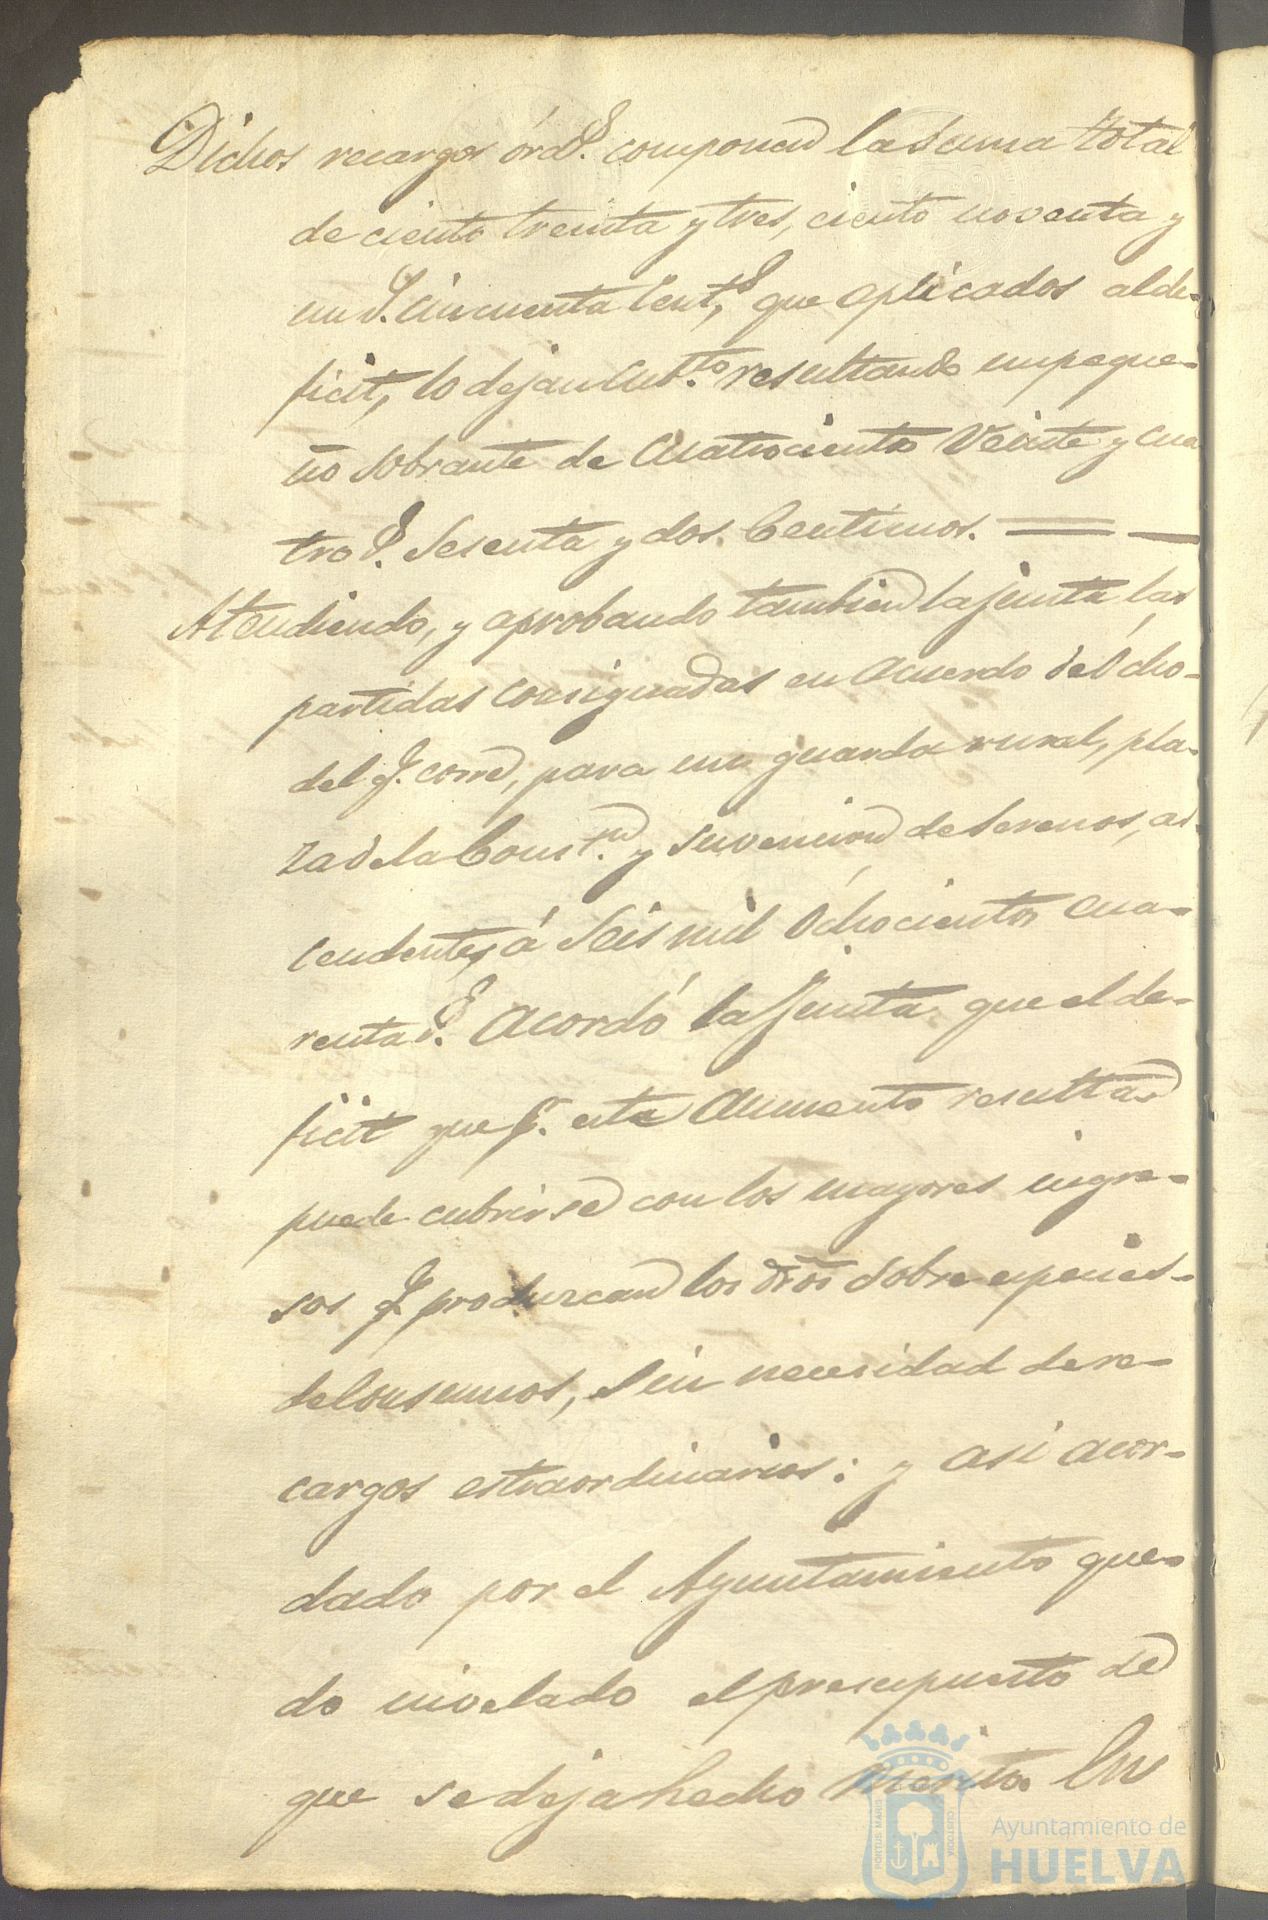 Dichos recargos órds. componen la suma total
de ciento treinta y tres, ciento noventa y
un rs. cincuenta cents, que aplicados al de-
ficit, lo dejan cubto. resultando un peque-
ño sobrante de cuatrocientos veinte y cua
tro rs. sesenta y dos centimos.
Atendiendo, y aprobando tambien la junta las
partidas consignadas en acuerdo del ocho
del q. corre, para un guarda rural, pla-
za de la Constn. y suvencion de serenos, as-
cendentes á seis mil ochocientos cua-
renta rs. Acordó la Junta que el de-
ficit que p. este aumento resulta
puede cubrirse con los mayores ingre-
sos q. produzcan los dros sobre especies
de consumos, sin necesidad de re-
cargos estraordinarios: y asi acor-
dado por el Ayuntamiento que-
do nivelado el presupuesto de
que se deja hecho merito. En
PORTUS MARIS
Ayuntamiento de
HUELVA